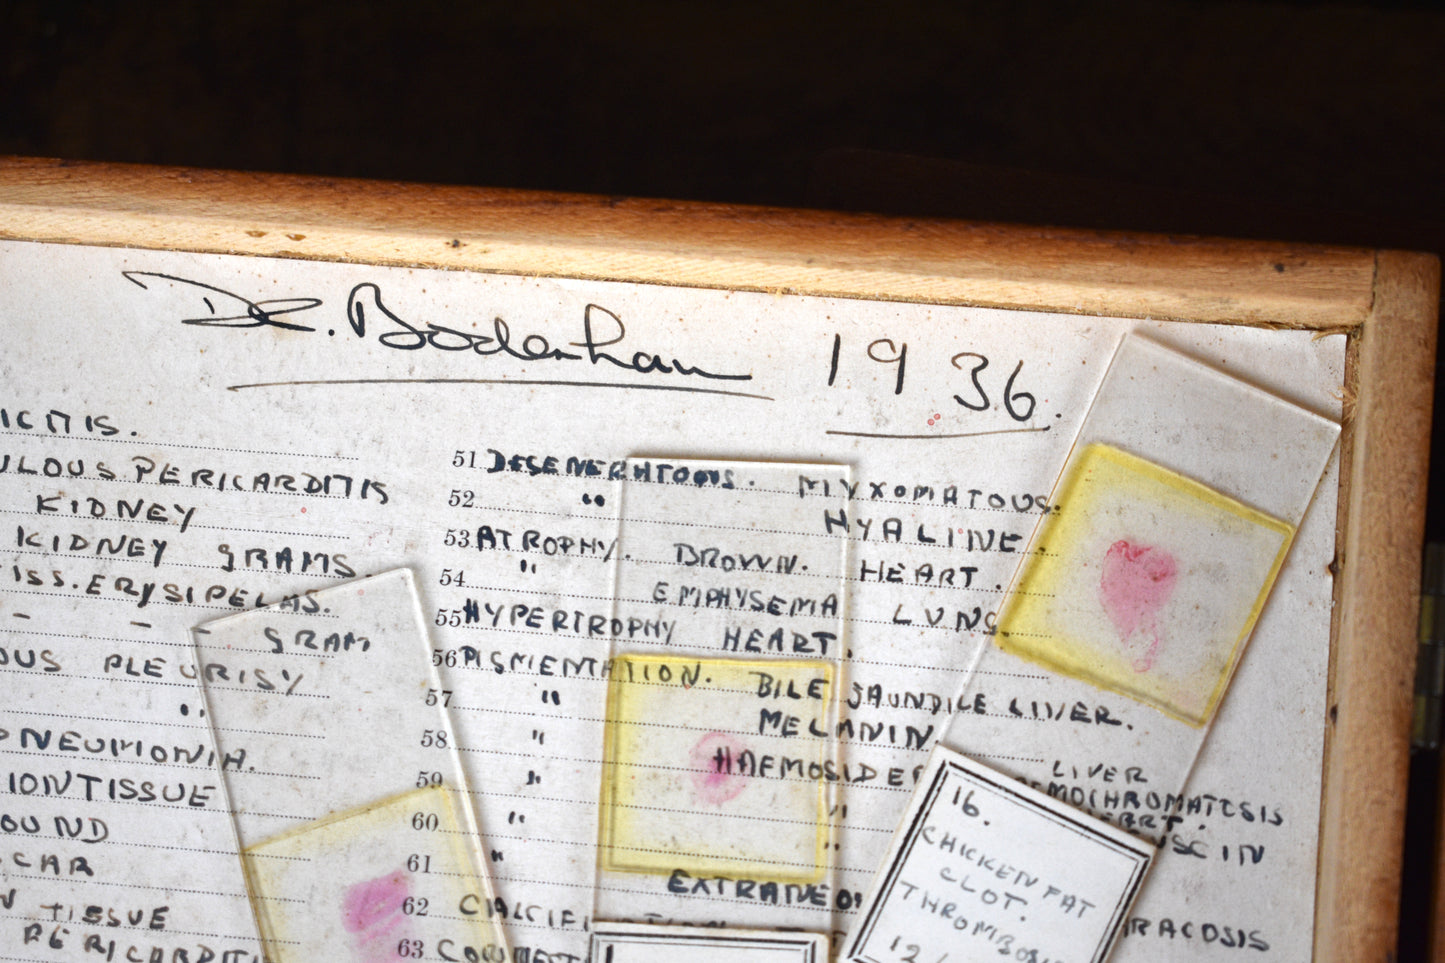 Dr. Bodenham 1936.
ICITIS.
ULOUS PERICARDITIS
KIDNEY
KIDNEY GRAMS.
ISS. ERYSIPELAS.
- - - GRAM
OUS PLEURISY
"
PNEUMONIA.
ION TISSUE
OUND
CAR
N TISSUE
PERICARDITI
51 MYXOMATOUS.
52 " HYALINE.
53 ATROPHY. BROWN. HEART.
54 " EMPHYSEMA LUNG.
55 HYPERTROPHY HEART.
56 PIGMENTATION. BILE JAUNDILE LIVER.
57 " MELANIN.
58 " HAEMOSIDER LIVER
59 " " MOCHROMATOSIS
60 " "
61 " EXTRANEO RACOSIS
62 CALCIFI
63
16.
CHICKEN FAT
CLOT.
THROMBOSI
12/